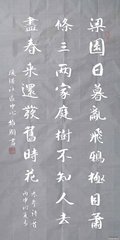 梁園日暮亂飛鴉極目蕭
條三兩家庭樹不知人去
盡春來還發舊時花